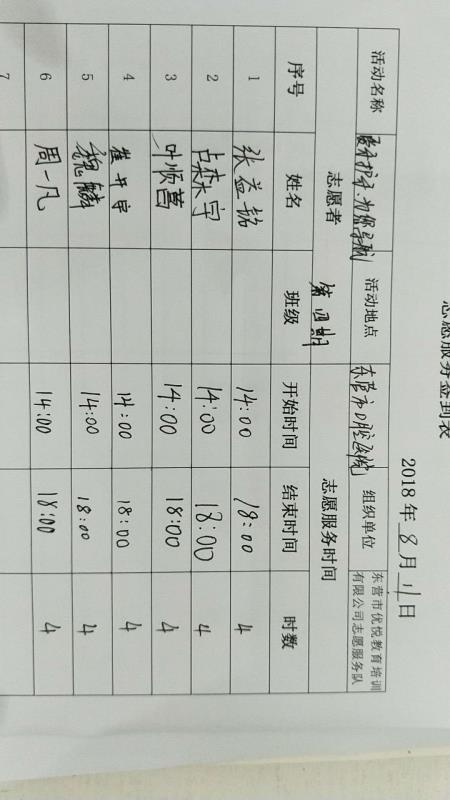 志愿服务签到表
2018 年 8 月 11 日
活动名称 活动地点 东营市口腔医院 组织单位 东营市优悦教育培训有限公司志愿服务队
志愿者 第四期 志愿服务时间
序号 姓名 班级 开始时间 结束时间 时数
1 张益铭 14:00 18:00 4
2 占森宇 14:00 18:00 4
3 叶顺菖 14:00 18:00 4
4 崔开宇 14:00 18:00 4
5 魏麟 14:00 18:00 4
6 周一凡 14:00 18:00 4
7